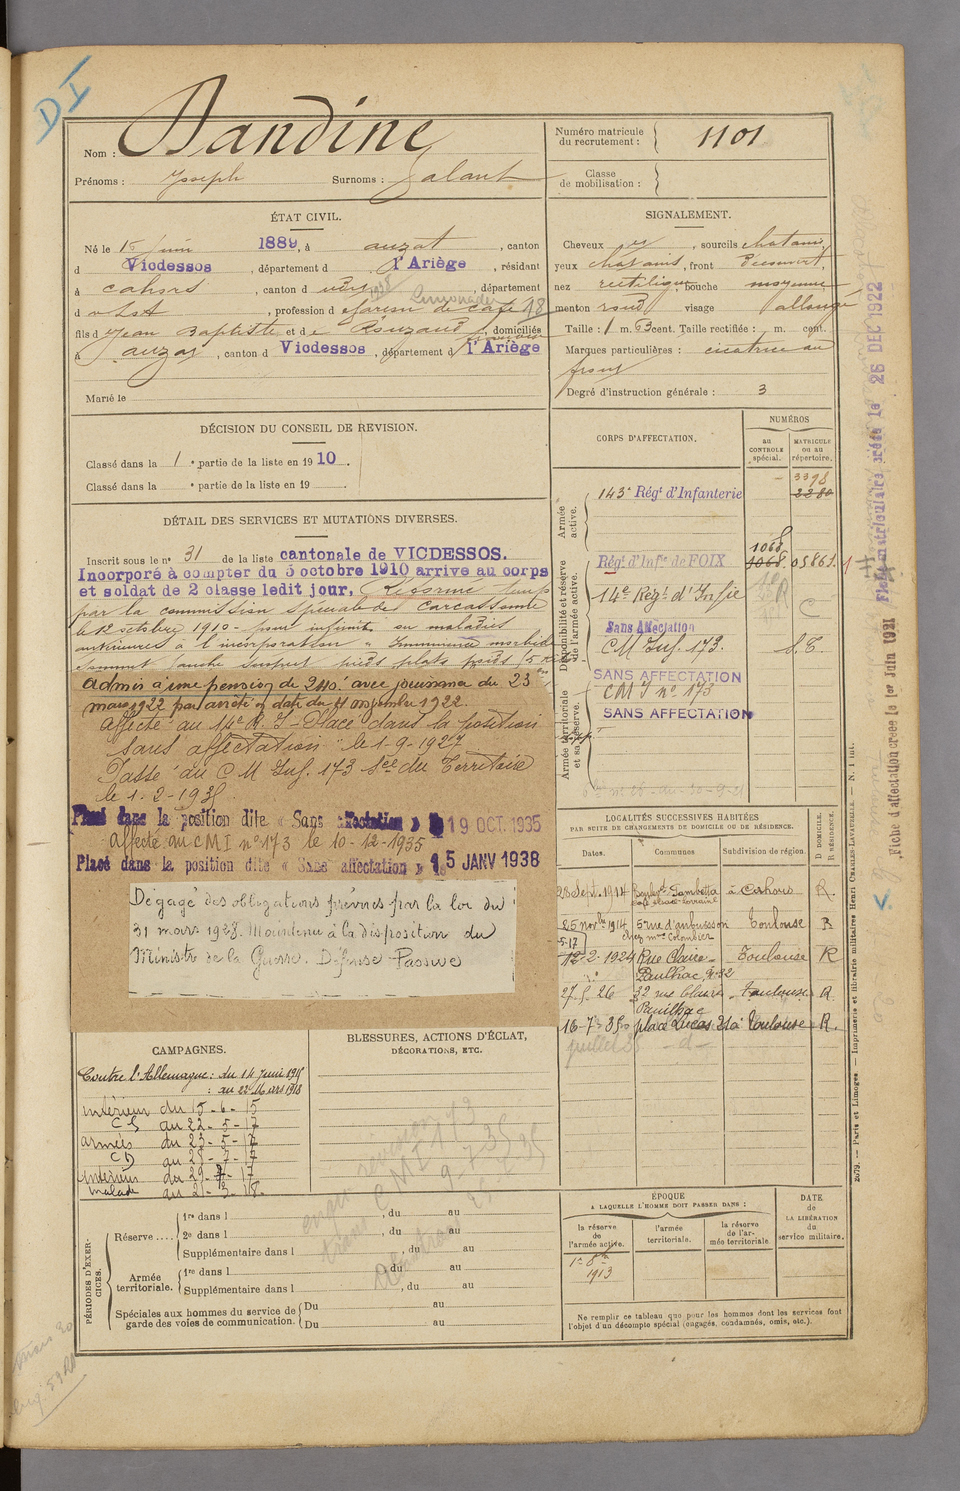 DI
Nom : Dandine
Prénoms : Joseph Surnoms : Galant
Numéro matricule du recrutement : 1101
Classe de mobilisation :
ÉTAT CIVIL.
Né le 15 juin 1889, à auzat, canton
d Vicdessos, département d l'Ariège, résidant
à cahors, canton d , département
d u Lot, profession d garçon de café
Limonadier
fils d Jean Baptiste et d e Rouzaud, domiciliés
à auzat, canton d Vicdessos, département d l'Ariège
Marié le
SIGNALEMENT.
Cheveux , sourcils chatains,
yeux chatains, front découvert,
nez rectiligne, bouche moyenne,
menton rond visage allongé
Taille : 1 m. 63 cent. Taille rectifiée : m. cent.
Marques particulières : cicatrice au
front
Degré d'instruction générale : 3
DÉCISION DU CONSEIL DE REVISION.
Classé dans la 1 e partie de la liste en 1910.
Classé dans la e partie de la liste en 19 .
DÉTAIL DES SERVICES ET MUTATIONS DIVERSES.
Inscrit sous le n° 31 de la liste cantonale de VICDESSOS.
Incorporé à compter du 5 octobre 1910 arrive au corps
et soldat de 2 classe ledit jour. Réformé temp
par la commission spéciale de Carcassonne
le 12 octobre 1910 - pour infirmités ou maladies
antérieures à l'incorporation "Imminence morbide
sommet gauche pieds plats
admis à une pension de 240f avec jouissance du 23
mars 1922 par arrêté en date du 4 novembre 1922.
Affecté au 14e R. I Placé dans la position
"sans affectation" le 1-9-1927
Passé au C M Inf. 173 Sce du Territoire
le 1-2-1935.
Placé dans la position dite « Sans affectation » le 19 OCT. 1935
Affecté au CMI n° 173 le 10-12-1935
Placé dans la position dite « Sans affectation » le 15 JANV 1938
Dégagé des obligations prévues par la loi du
31 mars 1928. Maintenu à la disposition du
Ministre de la Guerre. Défense Passive
CORPS D'AFFECTATION.
NUMÉROS
au CONTROLE spécial.
MATRICULE ou au répertoire.
Armée active.
143e Régt d'Infanterie 3398
2280
Disponibilité et réserve de l'armée active.
Régt d'Infie de FOIX 1068 1068 05861
14e Régt d'Infie R C
Sans Affectation
CM Inf. 173. S.T.
SANS AFFECTATION
Armée territoriale et sa réserve.
CMI n° 173
SANS AFFECTATION
Fiche matriculaire créée le 26 DEC 1922
Fiche d'affectation créée le 1er Juin 1921
LOCALITÉS SUCCESSIVES HABITÉES
PAR SUITE DE CHANGEMENTS DE DOMICILE OU DE RÉSIDENCE.
Dates. Communes Subdivision de région. D DOMICILE. R RÉSIDENCE.
28 Sept. 1914 Boulevd Gambetta à Cahors R.
café alsace-lorraine
25 novbre 1914 5 rue d'aubuisson Toulouse R
chez Mme Colombier
5-17
12-2-1924 Rue Claire Toulouse R
Paulhac, n° 32
27-5-26 32 rue Claire Toulouse R
Pauilhac
16-7-35 place Lucas 21a Toulouse R.
juillet 38 -d-
CAMPAGNES.
Contre l'Allemagne : du 14 Juin 1915
: au 22 Mars 1918
intérieur du 15-6-15
CS au 22-5-17
armées du 23-5-17
CD au 28-7-17
intérieur du 29-7-17
malade au 21-3-18.
BLESSURES, ACTIONS D'ÉCLAT,
DÉCORATIONS, ETC.
CMI 173
9-7-35
PÉRIODES D'EXERCICES.
Réserve....
1re dans l , du au
2e dans l , du au
Supplémentaire dans l , du au
Armée territoriale.
1re dans l , du au
Supplémentaire dans l , du au
Spéciales aux hommes du service de garde des voies de communication.
Du au
Du au
ÉPOQUE
A LAQUELLE L'HOMME DOIT PASSER DANS :
la réserve de l'armée active.
l'armée territoriale.
la réserve de l'armée territoriale
DATE de LA LIBÉRATION du service militaire.
1er 8bre
1913
Ne remplir ce tableau que pour les hommes dont les services font
l'objet d'un décompte spécial (engagés, condamnés, omis, etc.).
2079. — Paris et Limoges. — Imprimerie et librairie militaires Henri CHARLES-LAVAUZELLE. — N. 1 int.